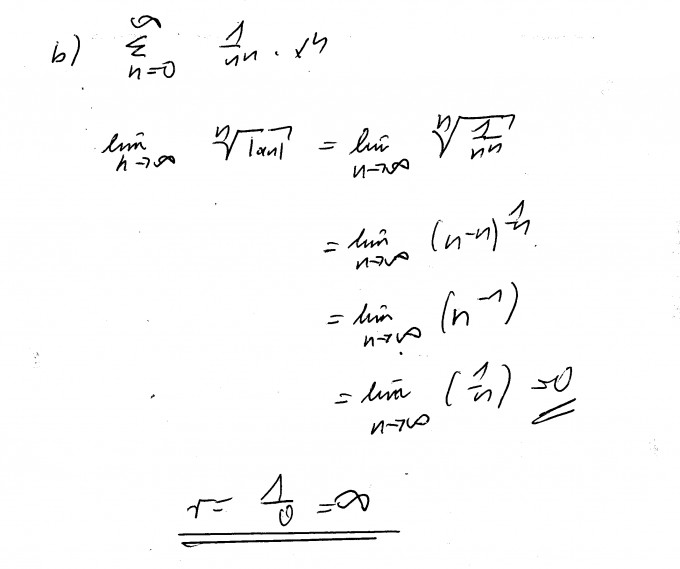 b) $\sum_{n=0}^{\infty} \frac{1}{n^n} \cdot x^n$
$\lim_{n \to \infty} \sqrt[n]{|a_n|} = \lim_{n \to \infty} \sqrt[n]{\frac{1}{n^n}}$
$= \lim_{n \to \infty} (n^{-n})^{\frac{1}{n}}$
$= \lim_{n \to \infty} (n^{-1})$
$= \lim_{n \to \infty} (\frac{1}{n}) = 0$
$r = \frac{1}{0} = \infty$